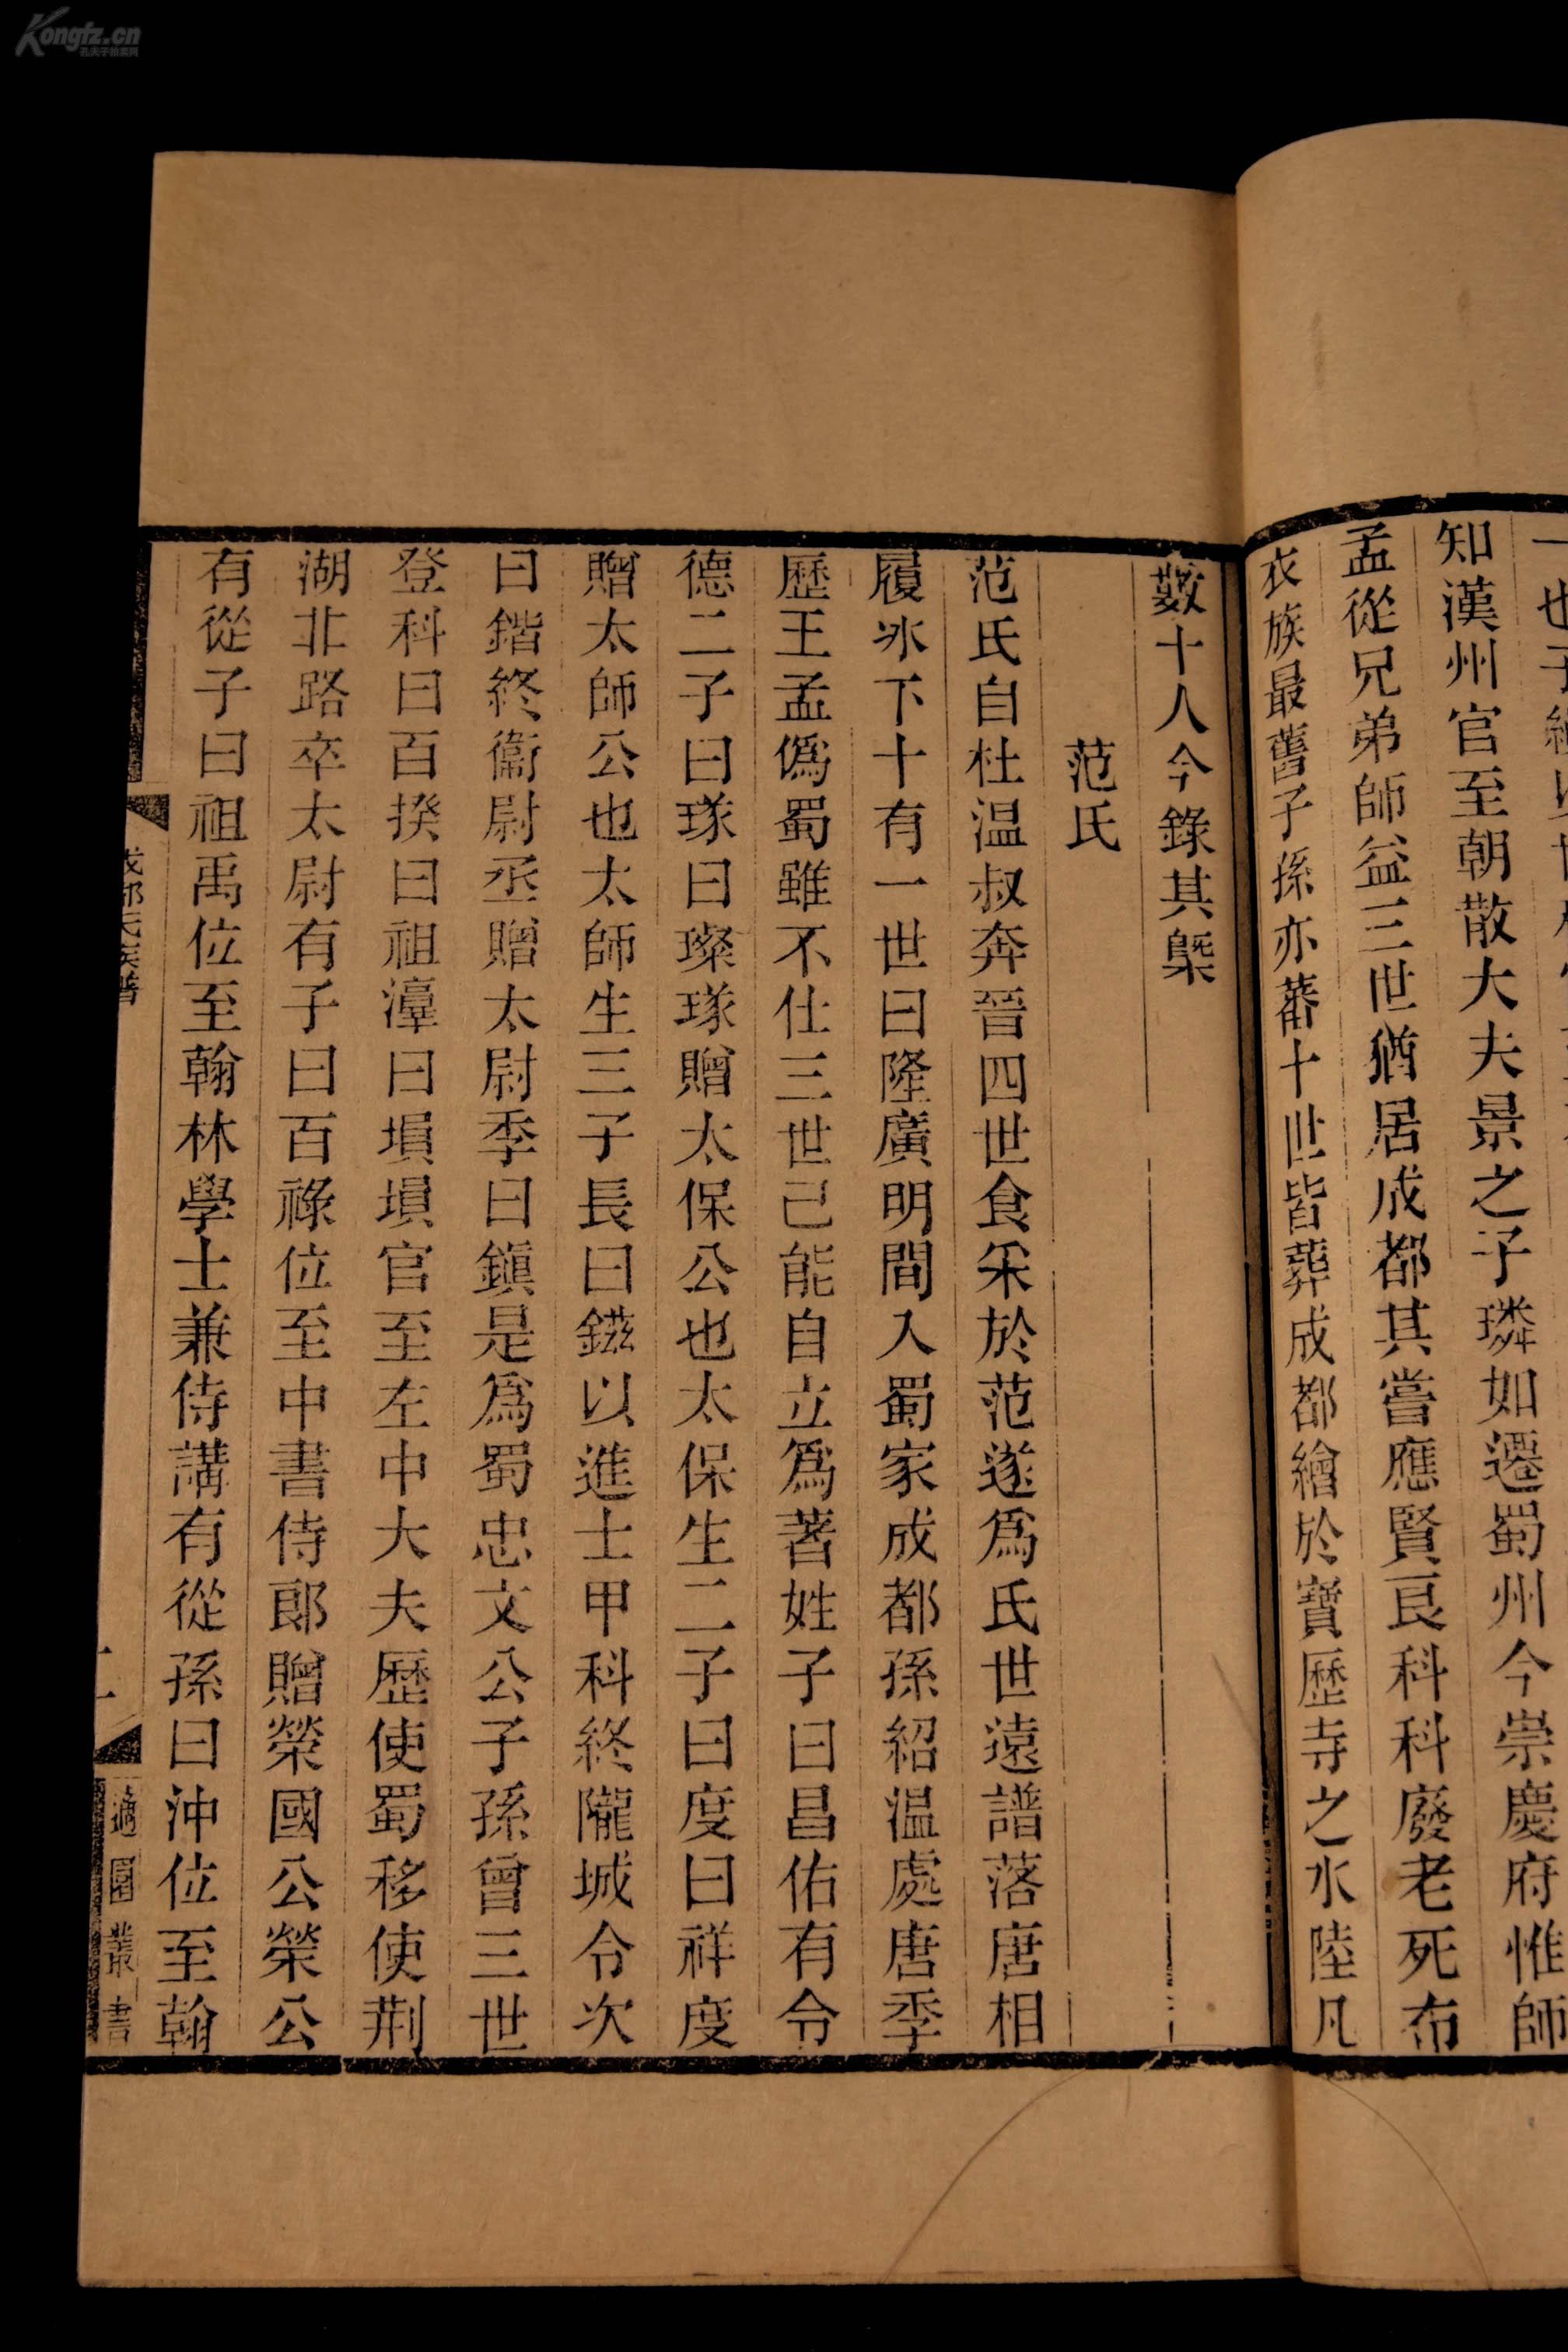 知漢州官至朝散大夫景之子璘如遷蜀州今崇慶府惟師
孟從兄弟師益三世猶居成都其嘗應賢良科科廢老死布
衣族最舊子孫亦蕃十世皆葬成都繪於寶歷寺之水陸凡
數十人今錄其槩
范氏
范氏自杜温叔奔晉四世食采於范遂爲氏世遠譜落唐相
履冰下十有一世曰隆廣明間入蜀家成都孫紹温處唐季
歷王孟僞蜀雖不仕三世已能自立爲著姓子曰昌佑有令
德二子曰璲曰璨璲贈太保公也太保生二子曰度曰祥度
贈太師公也太師生三子長曰鎡以進士甲科終隴城令次
曰鍇終衞尉丞贈太尉季曰鎭是爲蜀忠文公子孫曾三世
登科曰百揆曰祖澐曰塤塤官至左中大夫歷使蜀移使荆
湖北路卒太尉有子曰百祿位至中書侍郎贈榮國公榮公
有從子曰祖禹位至翰林學士兼侍講有從孫曰沖位至翰
成都氏族譜
適園叢書
Kongfz.cn